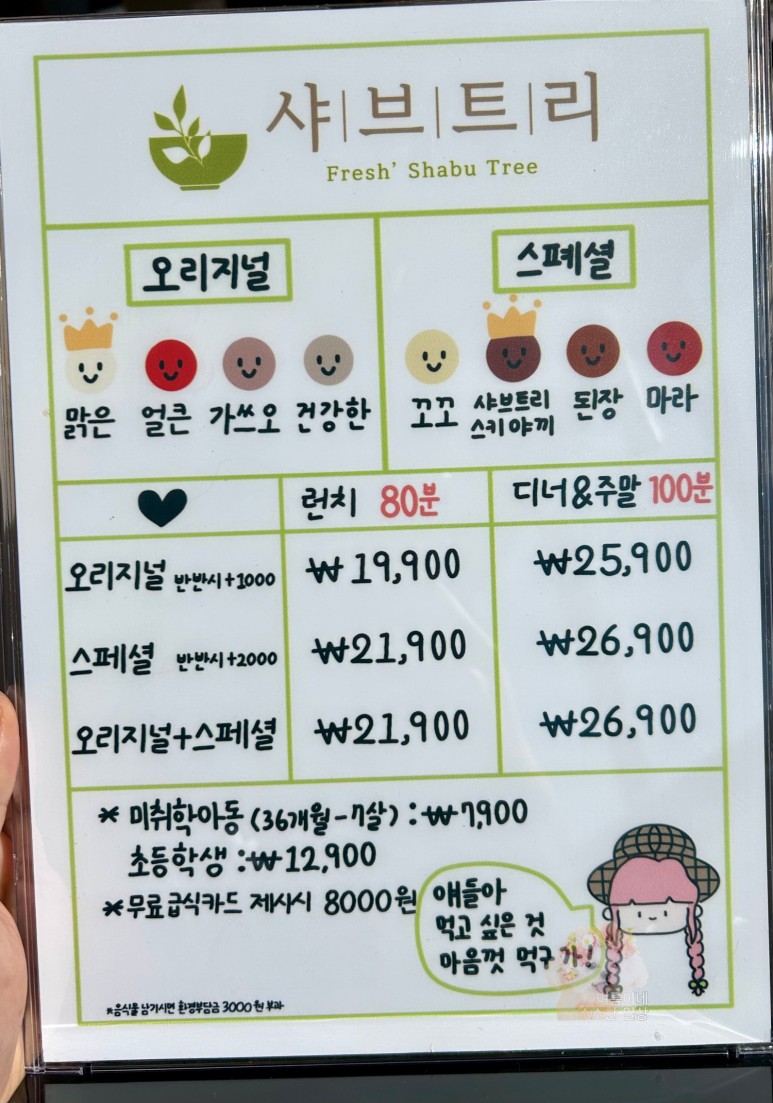 샤브트리
Fresh' Shabu Tree
오리지널
맑은 얼큰 가쓰오 건강한
스폐셜
꼬꼬 샤브트리 스키야끼 된장 마라
런치 80분
디너&주말 100분
오리지널 반반시+1000 ₩19,900 ₩25,900
스페셜 반반시+2000 ₩21,900 ₩26,900
오리지널+스페셜 ₩21,900 ₩26,900
* 미취학아동 (36개월-7살) : ₩7,900
초등학생 : ₩12,900
*무료급식카드 제시시 8000원
얘들아
먹고 싶은 것
마음껏 먹구가!
*음식물 남기시면 환경부담금 3000원 부과